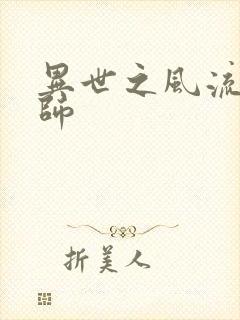 異世之風流
師
折美人